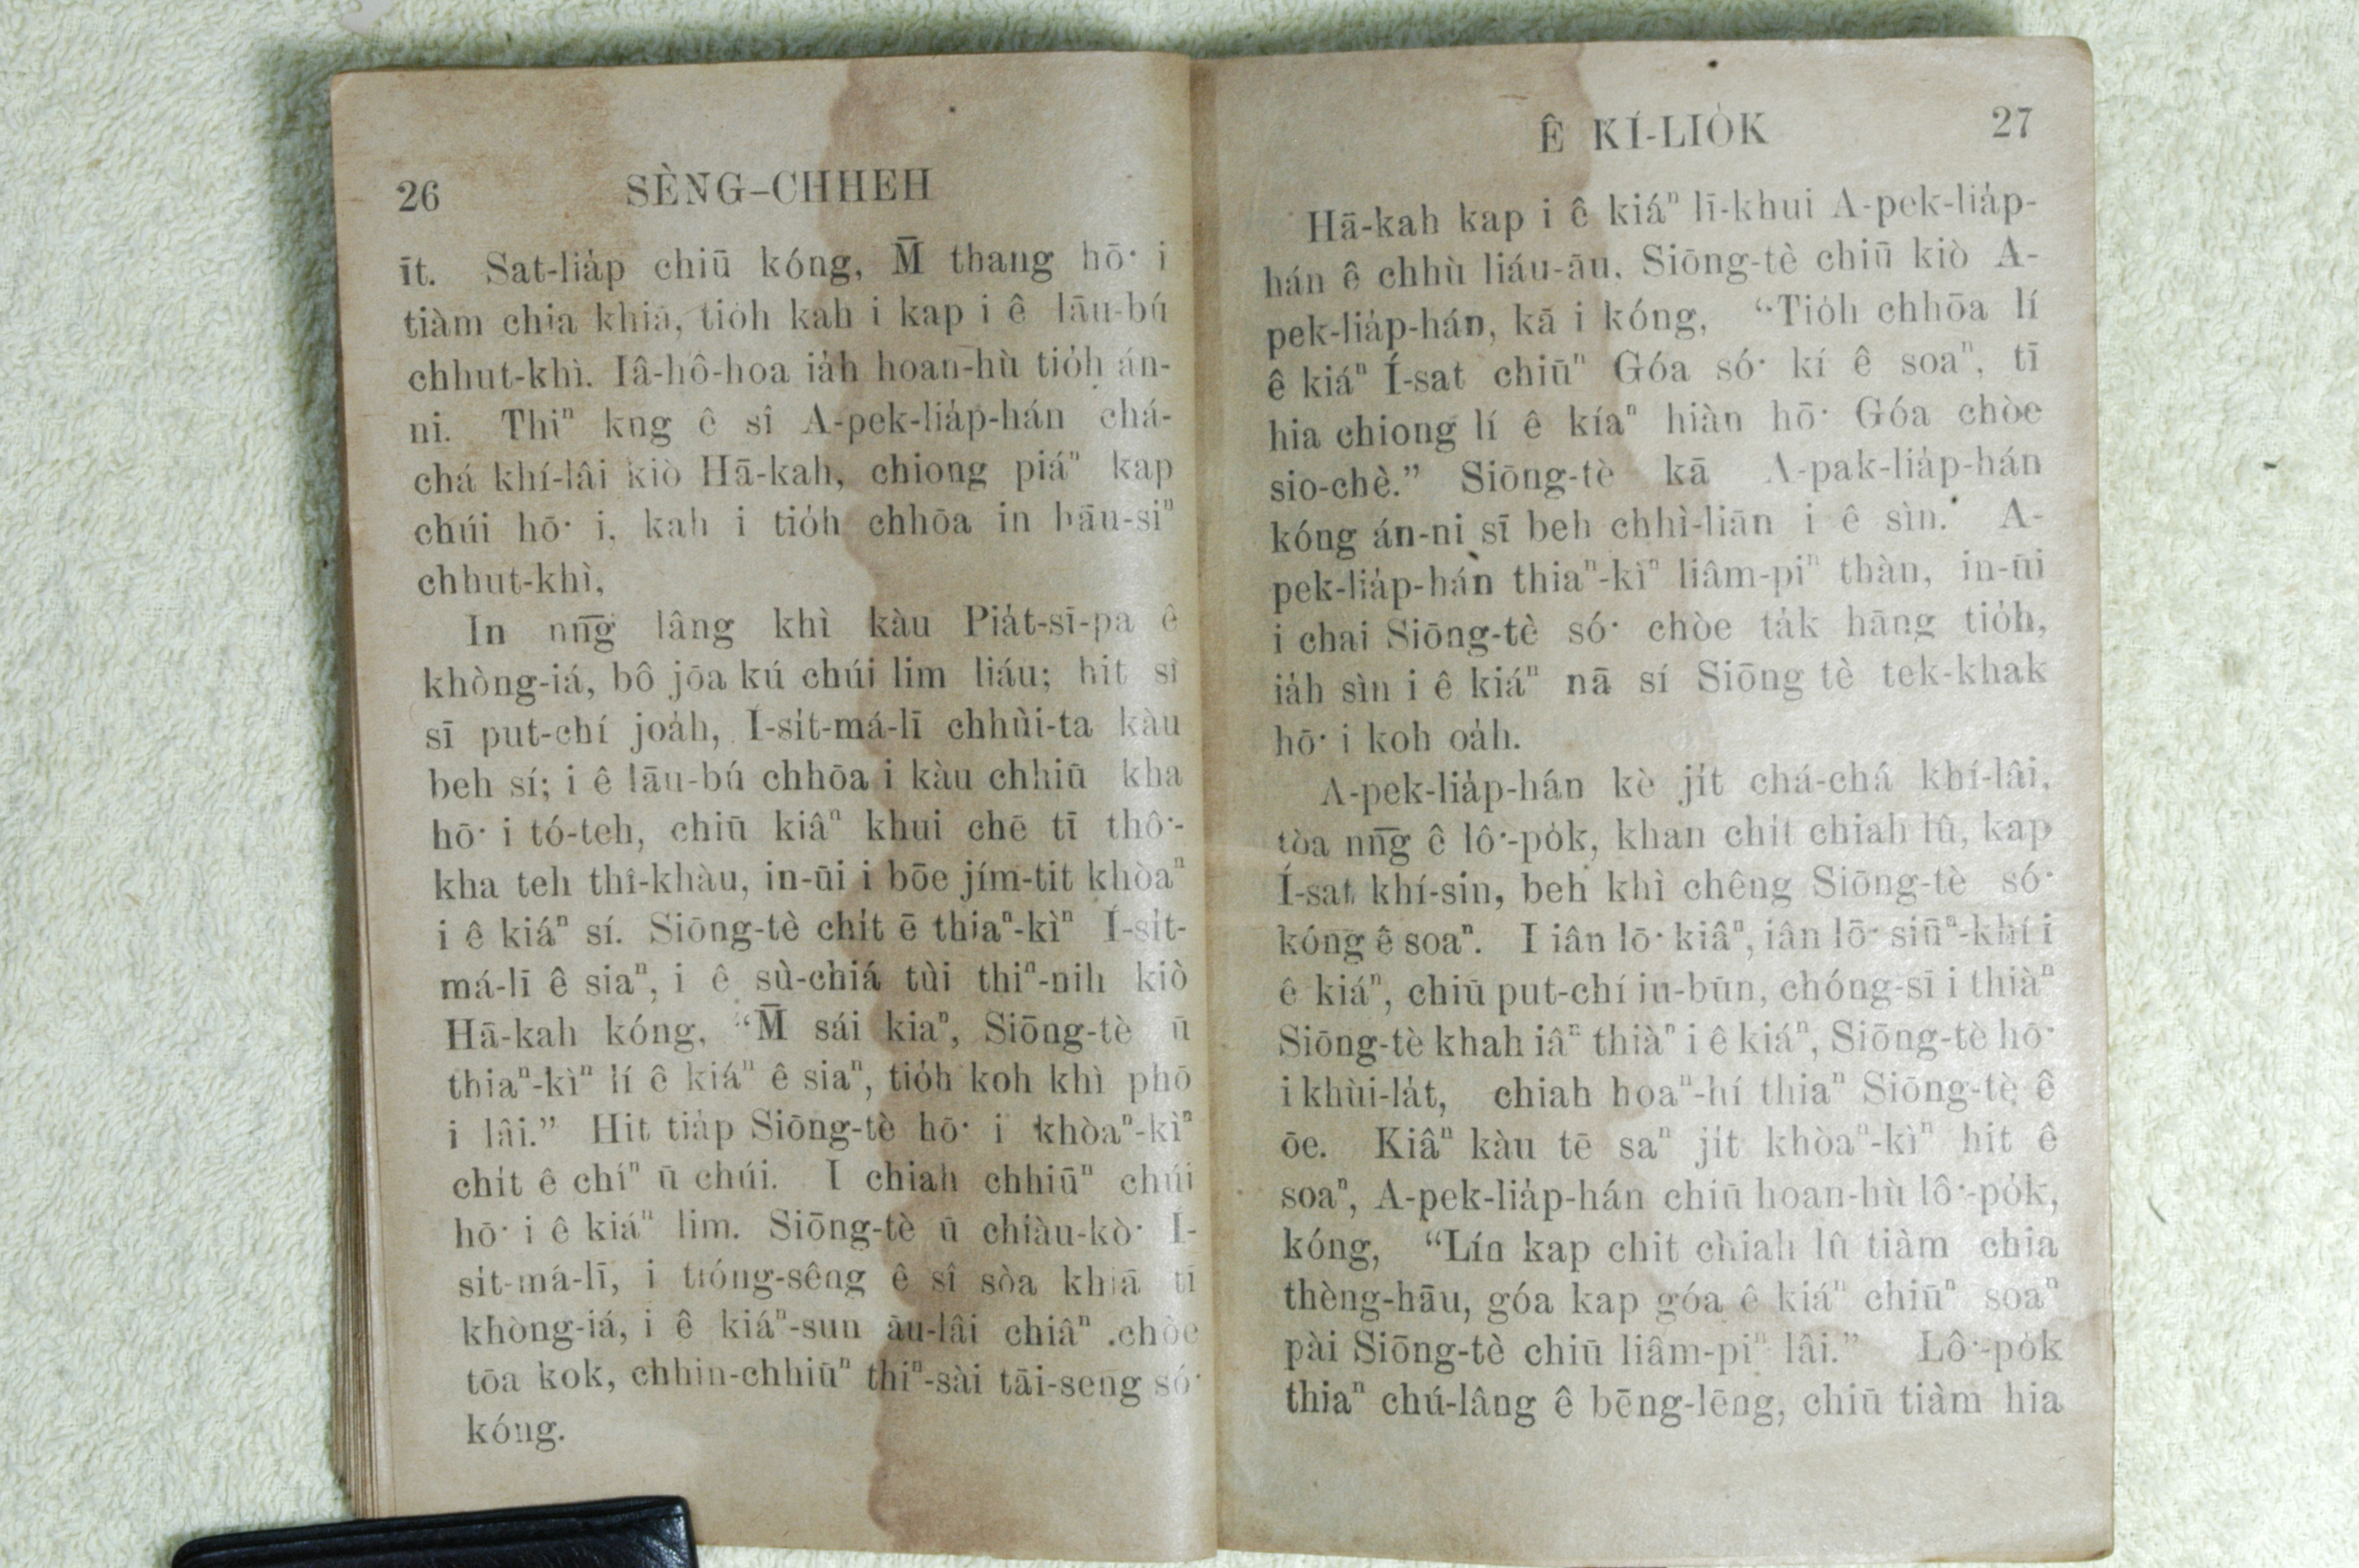 26 SÈNG-CHHEH
īt. Sat-lia̍p chiū kóng, M̄ thang hō͘ i
tiàm chia khiā, tio̍h kah i kap i ê lāu-bú
chhut-khì. Iâ-hô-hoa ia̍h hoan-hù tio̍h án-
ni. Thiⁿ kng ê sî A-pek-lia̍p-hán chá-
chá khí-lâi kiò Hā-kah, chiong piáⁿ kap
chúi hō͘ i, kah i tio̍h chhōa in hāu-siⁿ
chhut-khì,
In nn̄g lâng khì kàu Pia̍t-sī-pa ê
khòng-iá, bô jōa kú chúi lim liáu; hit sî
sī put-chí joa̍h, Í-si̍t-má-lī chhùi-ta kàu
beh sí; i ê lāu-bú chhōa i kàu chhiū kha
hō͘ i tó-teh, chiū kiâⁿ khui chē tī thô͘-
kha teh thî-khàu, in-ūi i bōe jím-tit khòaⁿ
i ê kiáⁿ sí. Siōng-tè chi̍t ē thiaⁿ-kìⁿ Í-si̍t-
má-lī ê siaⁿ, i ê sù-chiá tùi thiⁿ-nih kiò
Hā-kah kóng, “M̄ sái kiaⁿ, Siōng-tè ū
thiaⁿ-kìⁿ lí ê kiáⁿ ê siaⁿ, tio̍h koh khì phō
i lâi.” Hit tia̍p Siōng-tè hō͘ i khòaⁿ-kìⁿ
chi̍t ê chíⁿ ū chúi. I chiah chhiūⁿ chúi
hō͘ i ê kiáⁿ lim. Siōng-tè ū chiàu-kò͘ I-
si̍t-má-lī, i tióng-sêng ê sî sòa khiā tī
khòng-iá, i ê kiáⁿ-sun āu-lâi chiâⁿ chòe
tōa kok, chhin-chhiūⁿ thiⁿ-sài tāi-seng só͘
kóng.
Ê KÍ-LIO̍K 27
Hā-kah kap i ê kiáⁿ lī-khui A-pek-lia̍p-
hán ê chhù liáu-āu, Siōng-tè chiū kiò A-
pek-lia̍p-hán, kā i kóng, “Tio̍h chhōa lí
ê kiáⁿ Í-sat chiūⁿ Góa só͘ kí ê soaⁿ, tī
hia chiong lí ê kíaⁿ hiàn hō͘ Góa chòe
sio-chè.” Siōng-tè kā A-pak-lia̍p-hán
kóng án-ni sī beh chhì-liān i ê sìn. A-
pek-lia̍p-hán thiaⁿ-kìⁿ liâm-piⁿ thàn, in-ūi
i chai Siōng-tè só͘ chòe ta̍k hāng tio̍h,
ia̍h sìn i ê kiáⁿ nā sí Siōng tè tek-khak
hō͘ i koh oa̍h.
A-pek-lia̍p-hán kè ji̍t chá-chá khí-lâi,
tòa nn̄g ê lô͘-po̍k, khan chi̍t chiah lû, kap
Í-sat khí-sin, beh khì chêng Siōng-tè só͘
kóng ê soaⁿ. I iân lō͘ kiâⁿ, iân lō͘ siūⁿ-khí i
ê kiáⁿ, chiū put-chí iu-būn, chóng-sī i thiàⁿ
Siōng-tè khah iâⁿ thiàⁿ i ê kiáⁿ, Siōng-tè hō͘
i khùi-la̍t, chiah hoaⁿ-hí thiaⁿ Siōng-tè ê
ōe. Kiâⁿ kàu tē saⁿ ji̍t khòaⁿ-kìⁿ hit ê
soaⁿ, A-pek-lia̍p-hán chiū hoan-hù lô͘-po̍k,
kóng, “Lín kap chit chiah lû tiàm chia
thèng-hāu, góa kap góa ê kiáⁿ chiūⁿ soaⁿ
pài Siōng-tè chiū liâm-piⁿ lâi.” Lô͘-po̍k
thiaⁿ chú-lâng ê bēng-lēng, chiū tiàm hia